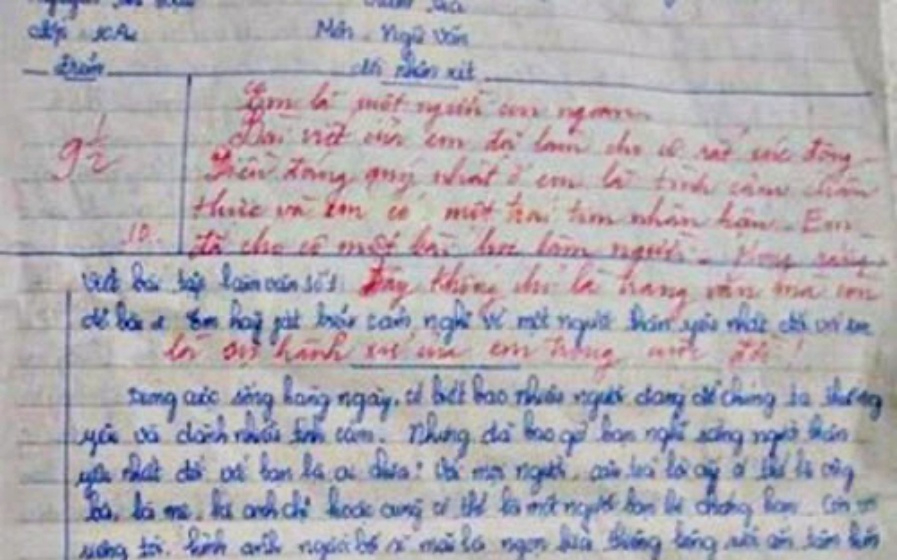 Lớp 10A
Môn: Ngữ Văn
Điểm
Lời nhận xét
9 1/2
10
Em là một người con ngoan.
Bài viết của em đã làm cho cô rất xúc động.
Điều đáng quý nhất ở em là tình cảm chân
thực và em có một trái tim nhân hậu. Em
đã cho cô một bài học làm người. Mong rằng
Viết bài tập làm văn số 1
đây không chỉ là trang văn mà còn
Đề bài: Em hãy phát biểu cảm nghĩ về một người thân yêu nhất đối với em
là sự hành xử của em trong cuộc đời!
Trong cuộc sống hàng ngày, có biết bao nhiêu người đáng để chúng ta thương
yêu và dành nhiều tình cảm. Nhưng đã bao giờ bạn nghĩ rằng người thân
yêu nhất đối với bạn là ai chưa? Với mọi người, câu trả lời ấy có thể là ông
bà, là mẹ, là anh chị hoặc cũng có thể là một người bạn bè chẳng hạn. Còn
tôi, hình ảnh người bố sẽ mãi là ngọn lửa thiêng liêng